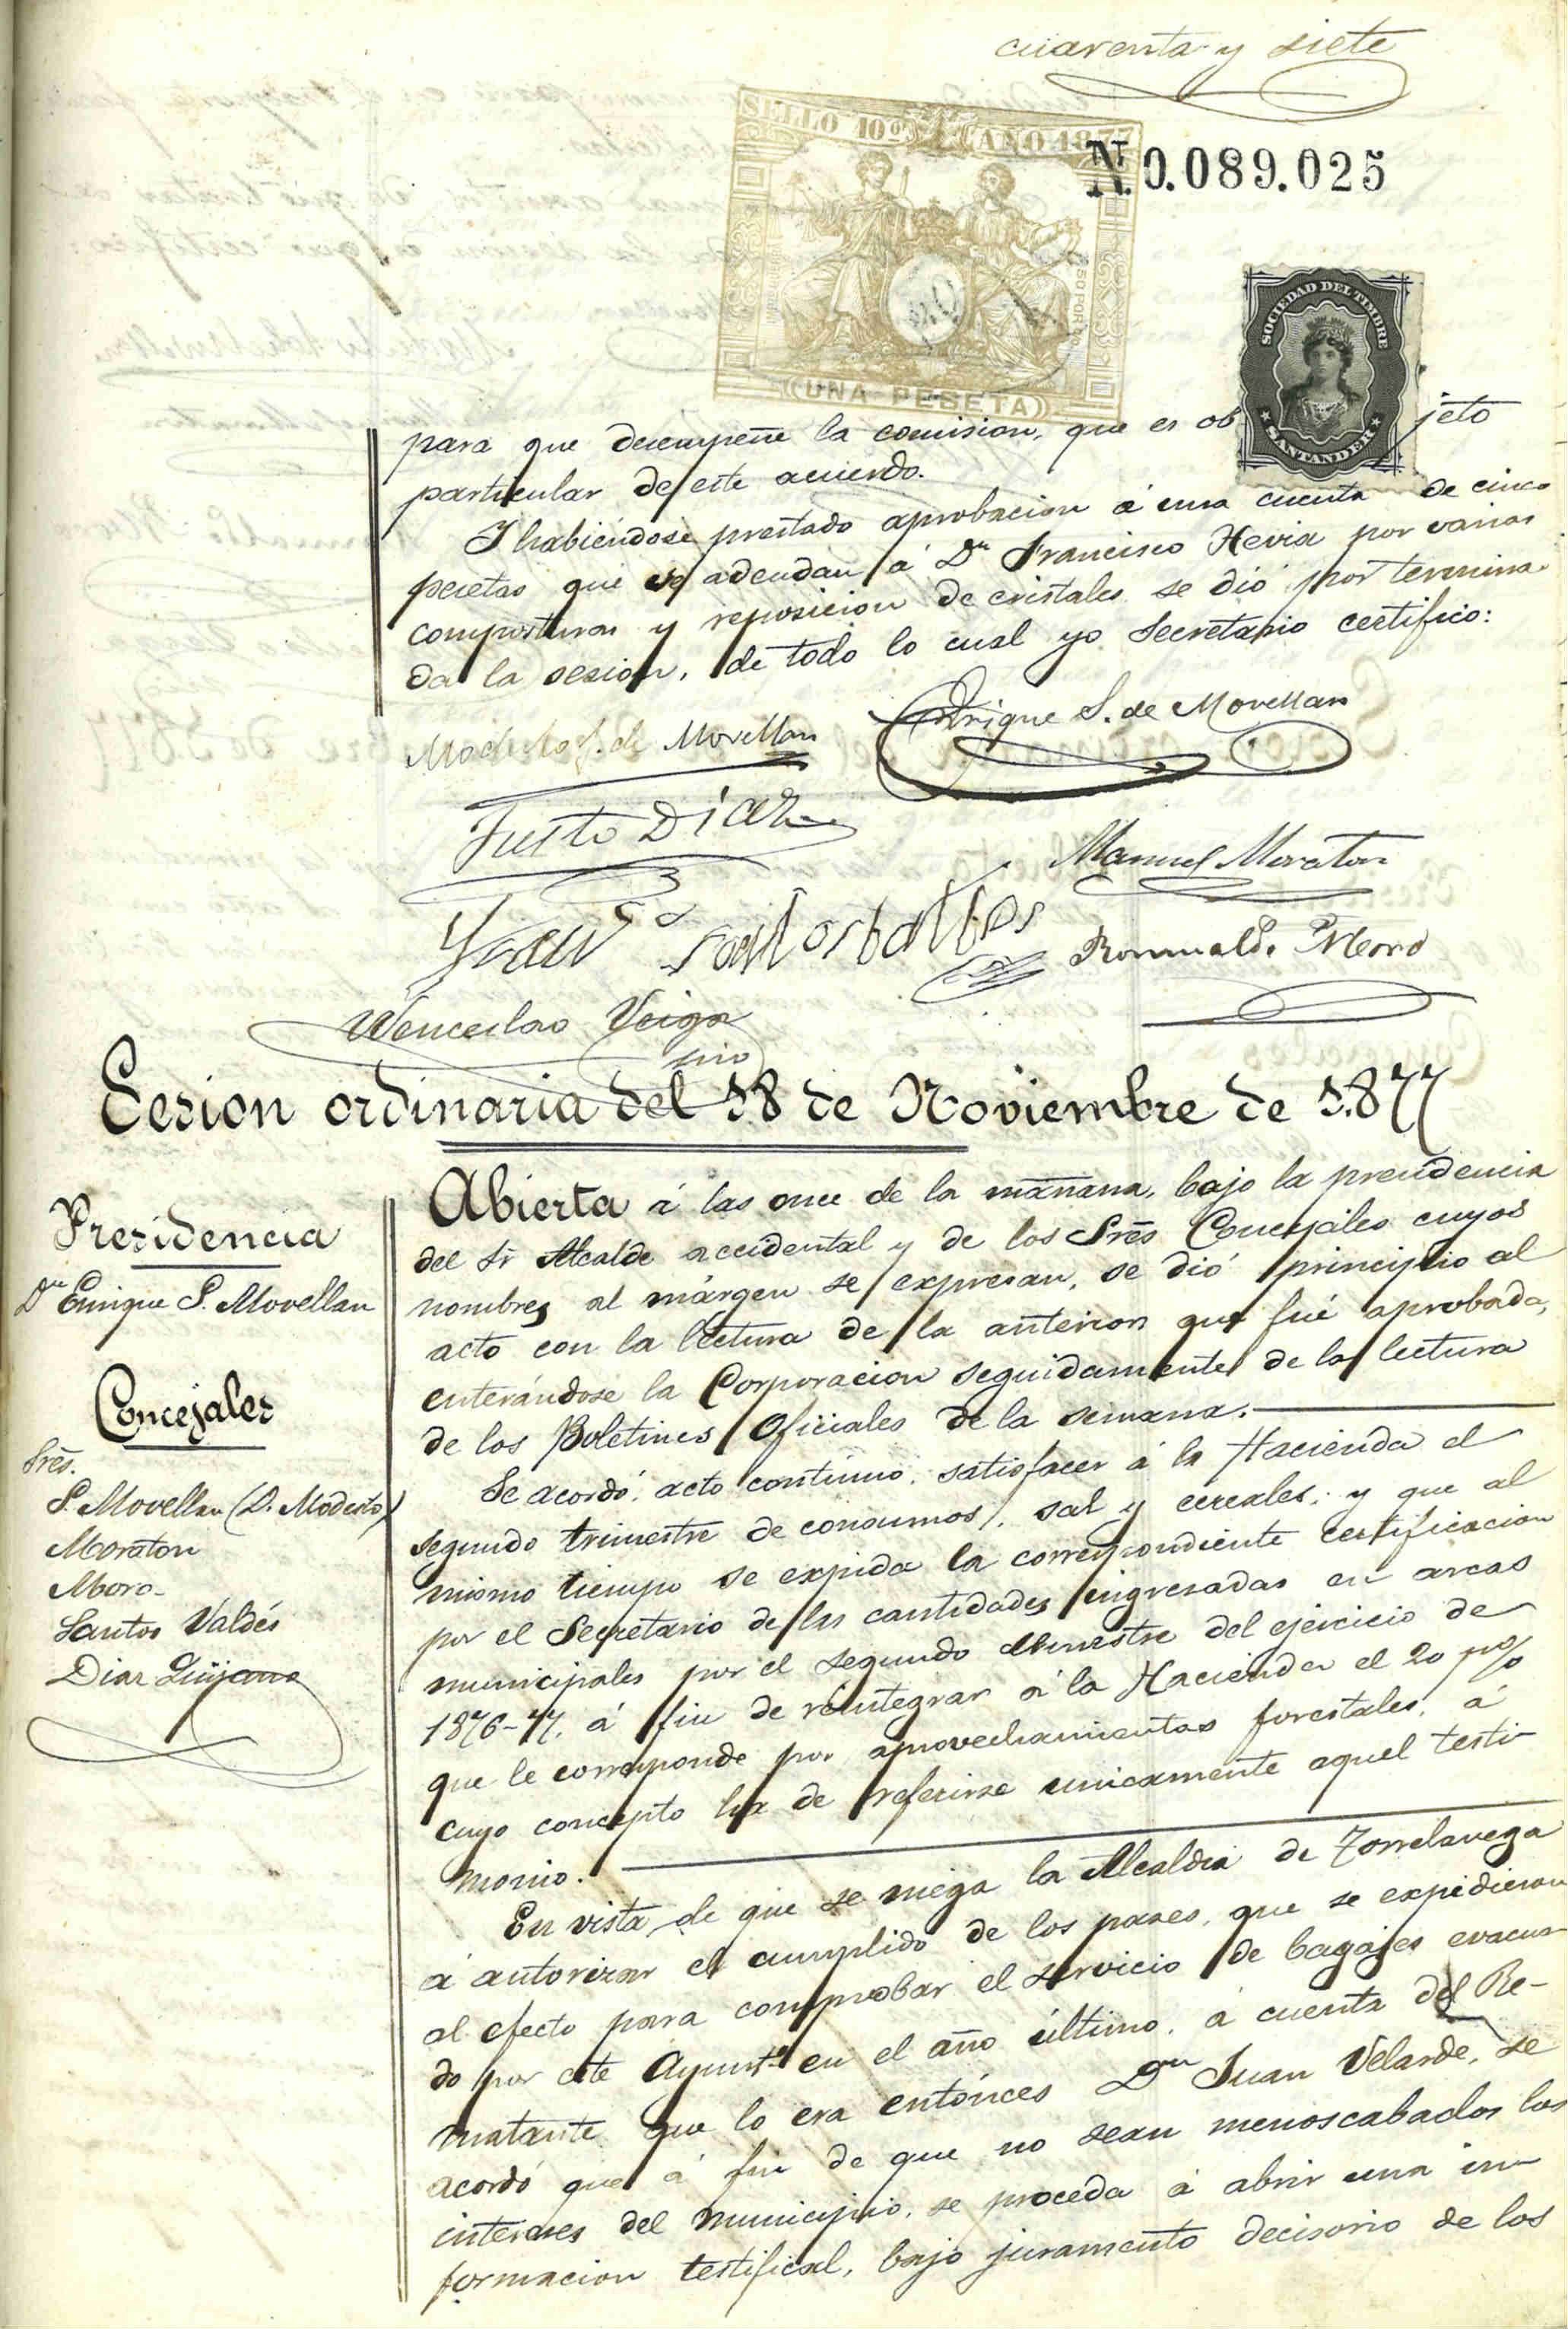 cuarenta y siete
SELLO 10º AÑO 1877
N. 0.089.025
UNA PESETA
SOCIEDAD DEL TIMBRE
SANTANDER
para que desempeñe la comision, que es objeto
particular de este acuerdo.
Y habiéndose prestado aprobacion á una cuenta de cinco
pesetas que se adeudan á Dn Francisco Hevia por varias
composturas y reposicion de cristales se dió por termina-
da la sesion, de todo lo cual yo Secretario certifico:
Modesto S. de Movellan
Enrique S. de Movellan
Justo Diaz
Manuel Moraton
Franco Santos Valdes
Romualdo Moro
Wenceslao Veiga
srio
Sesion ordinaria del 18 de Noviembre de 1.877
Presidencia
Dn Enrique S. Movellan
Concejales
Sres.
S. Movellan (D. Modesto)
Moraton
Moro
Santos Valdés
Diaz Quijano
Abierta á las once de la mañana, bajo la presidencia
del Sr Alcalde accidental y de los Sres Concejales cuyos
nombres al márgen se expresan, se dió principio al
acto con la lectura de la anterior que fué aprobada,
enterándose la Corporacion seguidamente de la lectura
de los Boletines Oficiales de la semana.
Se acordó, acto contínuo, satisfacer á la Hacienda el
segundo trimestre de consumos, sal y cereales; y que al
mismo tiempo se expida la correspondiente certificacion
por el Secretario de las cantidades ingresadas en arcas
municipales por el segundo semestre del ejercicio de
1876-77, á fin de reintegrar á la Hacienda el 20 p%
que le corresponde por aprovechamientos forestales, á
cuyo concepto ha de referirse unicamente aquel testi-
monio.
En vista de que se niega la Alcaldia de Torrelavega
á autorizar el cumplido de los pases, que se expidieron
al efecto para comprobar el servicio de bagajes evacua-
do por este Ayuntº en el año último, á cuenta del Re-
matante que lo era entónces Dn Juan Velarde, se
acordó que á fin de que no sean menoscabados los
intereses del municipio, se proceda á abrir una in-
formacion testifical, bajo juramento decisorio de los